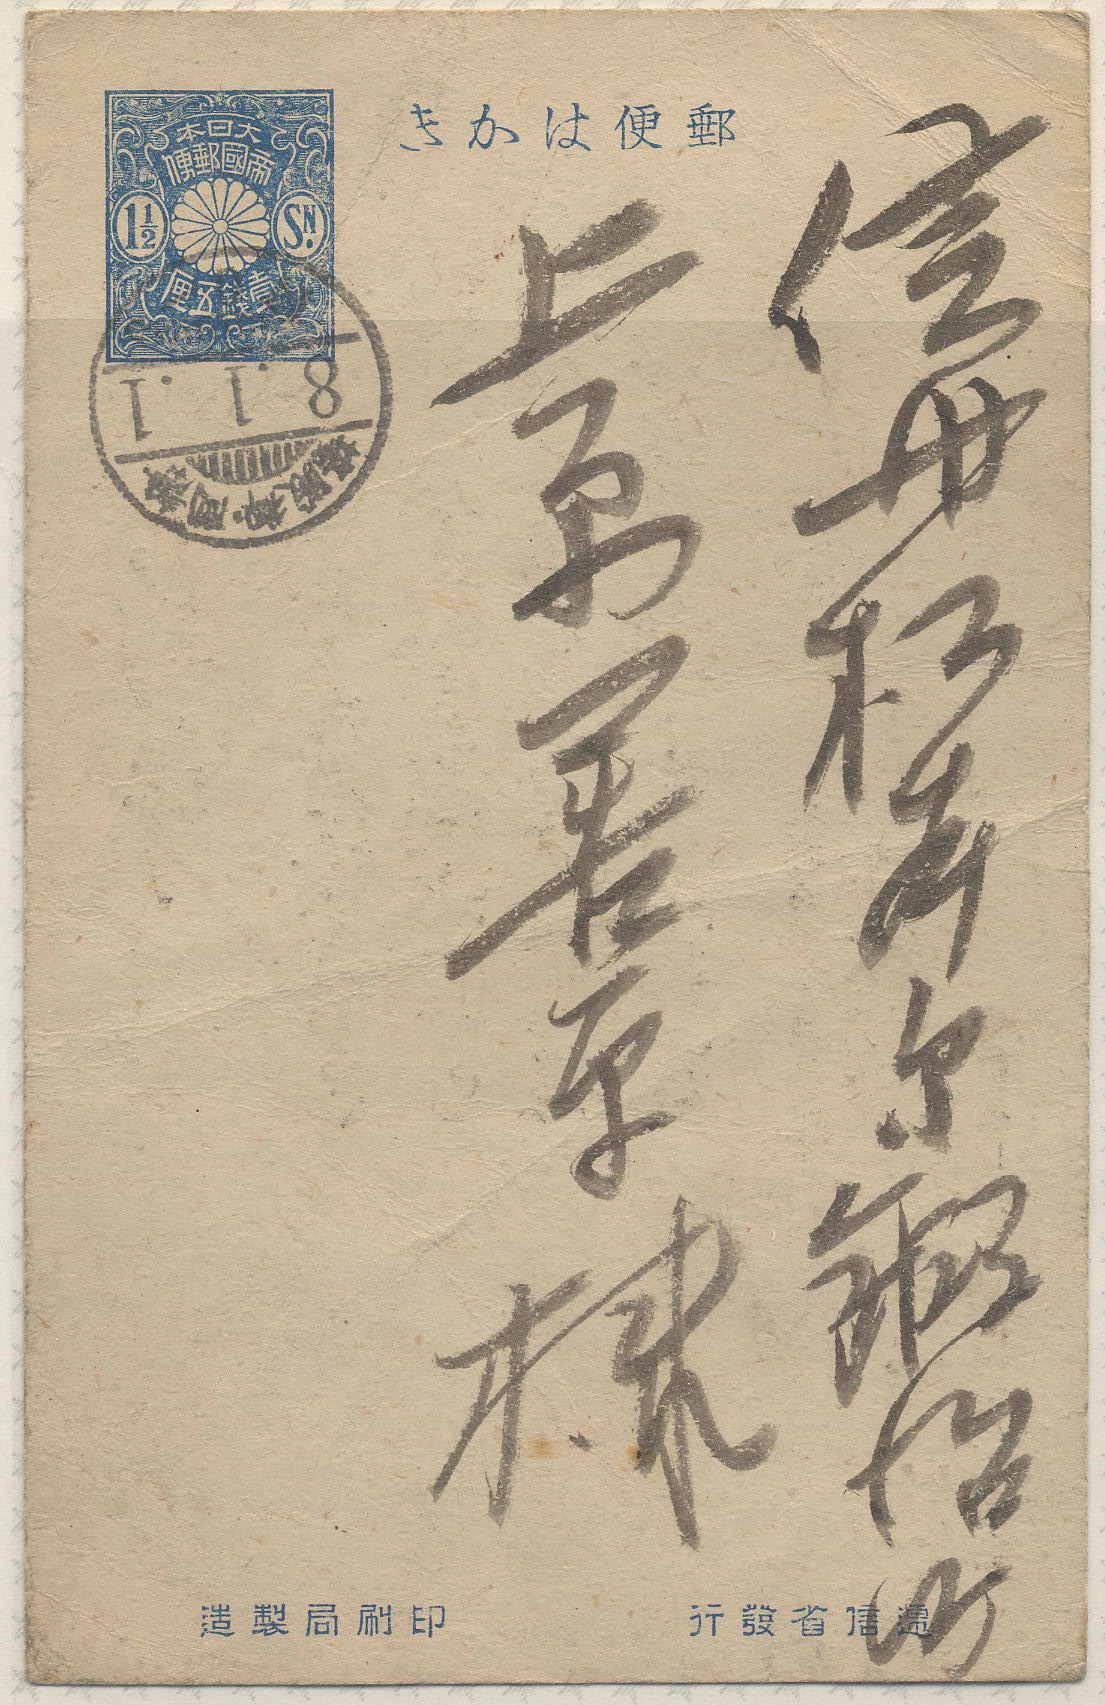 郵便はかき
大日本
帝國郵便
1½
SN.
壹錢五厘
8.1.1
信州松本市
鍛冶町
上原善平様
逓信省發行
印刷局製造